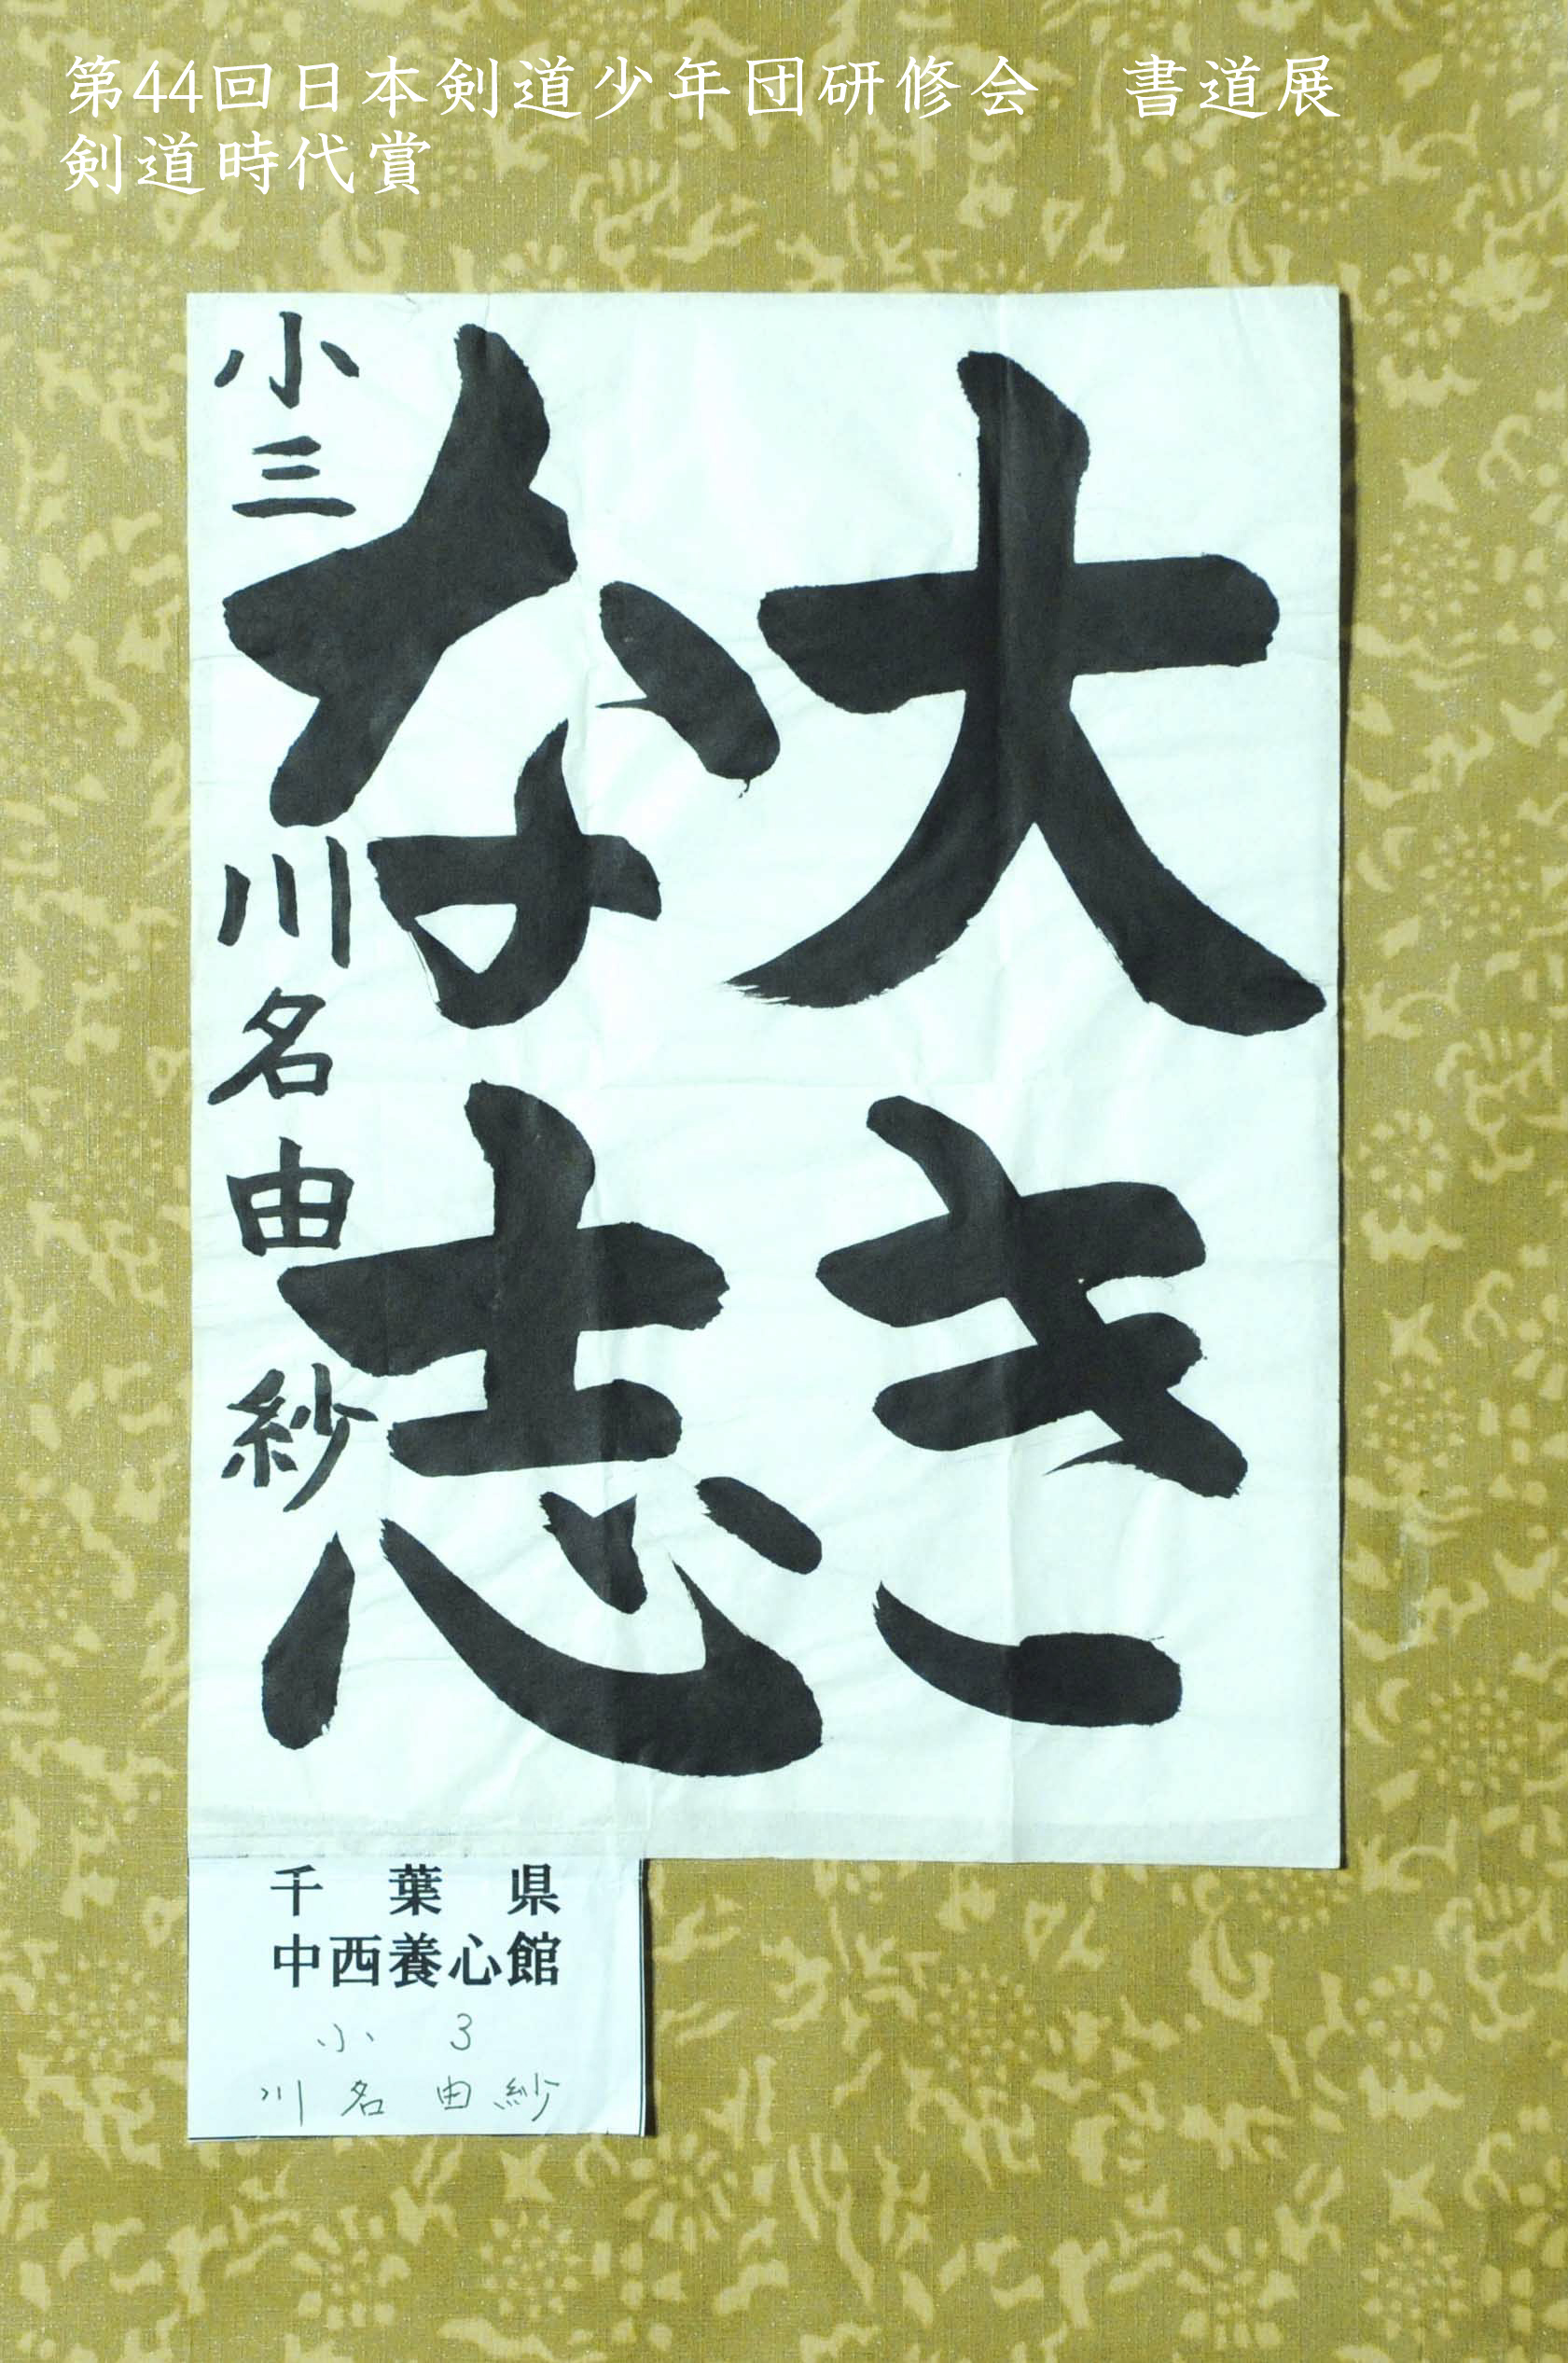 第44回日本剣道少年団研修会　書道展
剣道時代賞
大き
な志
小三 川名由紗
千葉県
中西養心館
小 3
川名由紗